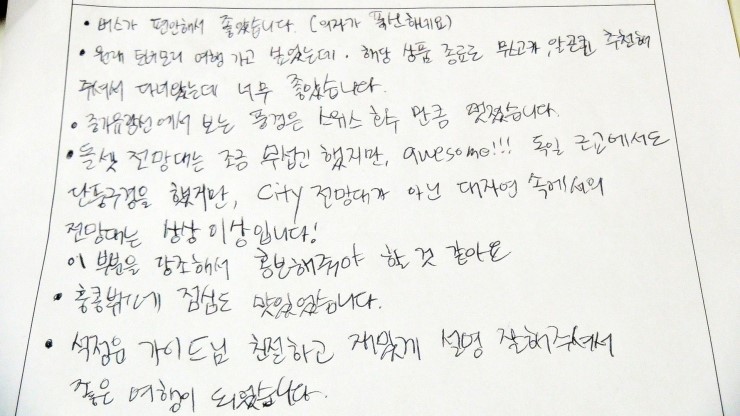 • 버스가 편안해서 좋았습니다. (의자가 푹신하네요)
• 원래 틴너모리 여행 가고 싶었는데. 해당 상품 종료로 무스고카, 알곤퀸 추천해
주셔서 다녀왔는데 너무 좋았습니다.
• 증기유람선에서 보는 풍경은 스위스 호수 만큼 멋졌습니다.
• 돌셋 전망대는 조금 무섭긴 했지만, awesome!!! 독일 근교에서도
단풍구경을 했지만, City 전망대가 아닌 대자연 속에서의
전망대는 상상 이상입니다!
이 부분을 강조해서 홍보해줘야 할 것 같아요
• 홍콩밖에 점심도 맛있었습니다.
• 석정음 가이드님 친절하고 재밌게 설명 잘해주셔서
좋은 여행이 되었습니다.